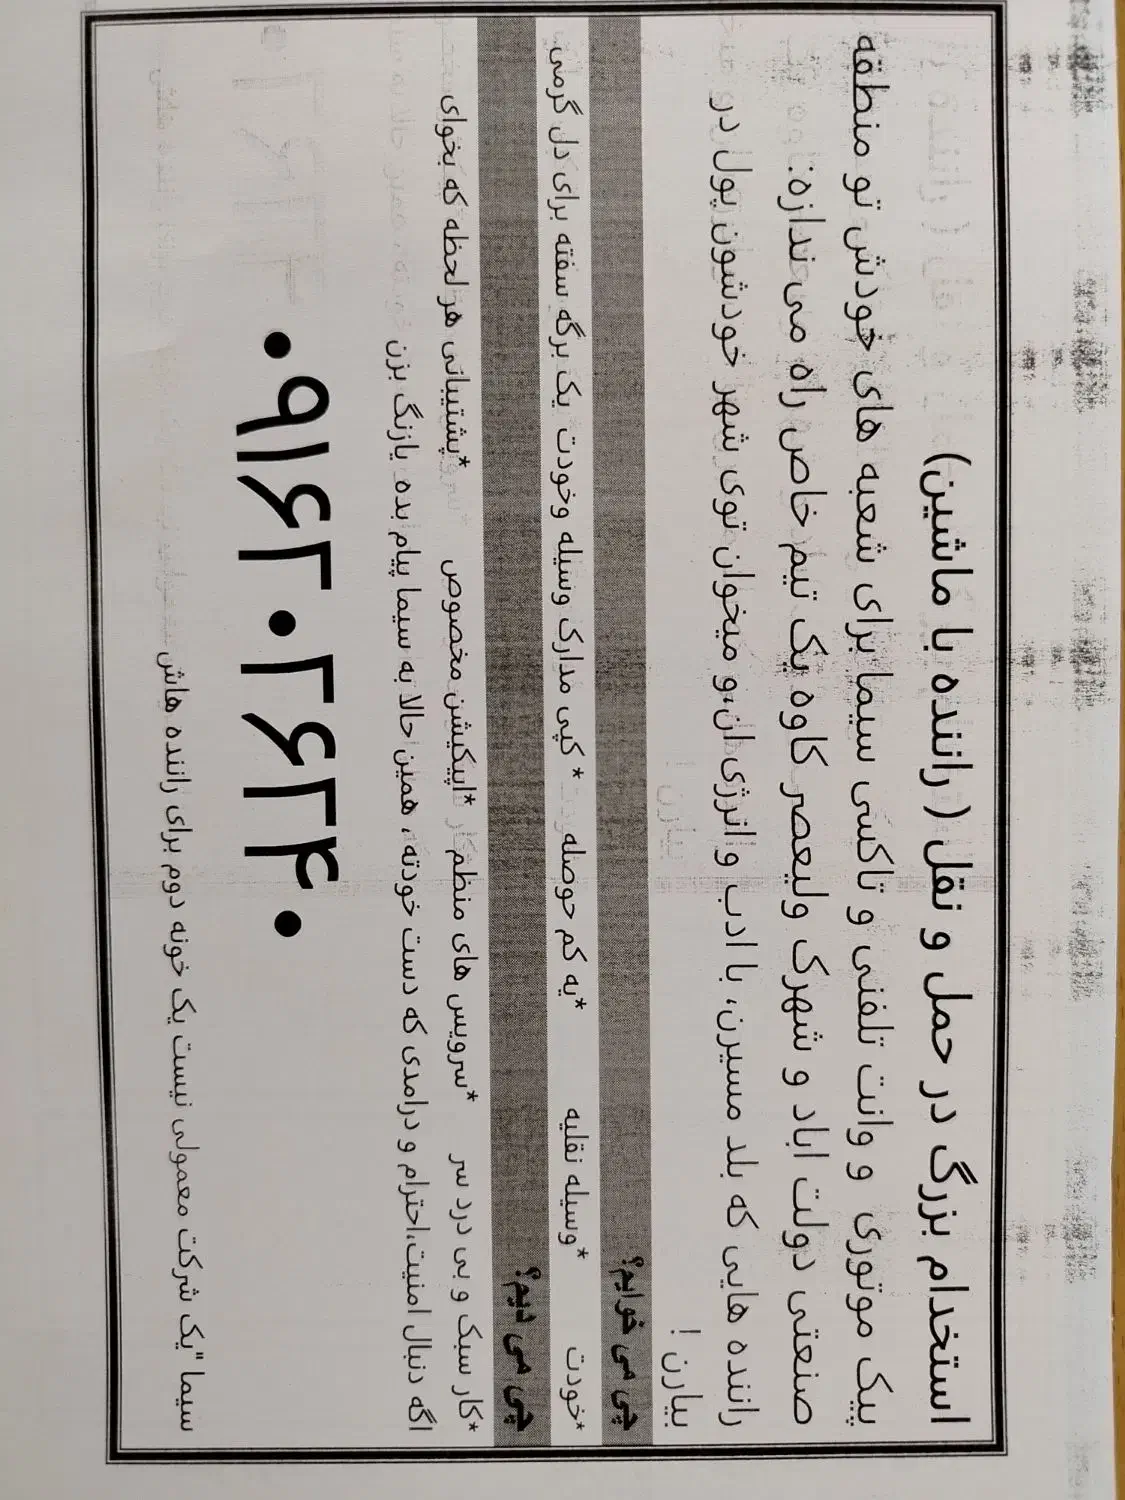 استخدام بزرگ در حمل و نقل ( راننده با ماشین)
پیک موتوری و وانت تلفنی و تاکسی سیما برای شعبه های خودش تو منطقه
صنعتی دولت اباد و شهرک ولیعصر کاوه یک تیم خاص راه می‌ندازه:
راننده هایی که بلد مسیرن، با ادب و انرژی‌ان،و میخوان توی شهر خودشون پول در
بیارن !
چی می خوایم؟
*خودت *وسیله نقلیه *یه کم حوصله * کپی مدارک وسیله وخودت یک برگه سفته برای دل گرمی
چی می دیم؟
*کار سبک و بی درد سر *سرویس های منظم *اپیکیشن مخصوص *پشتیبانی هر لحظه که بخوای
اگه دنبال امنیت،احترام و درامدی که دست خودته، همین حالا به سیما پیام بده یازنگ بزن
۰۹۱۶۲۰۲۶۲۴۰
سیما "یک شرکت معمولی نیست یک خونه دوم برای راننده هاش